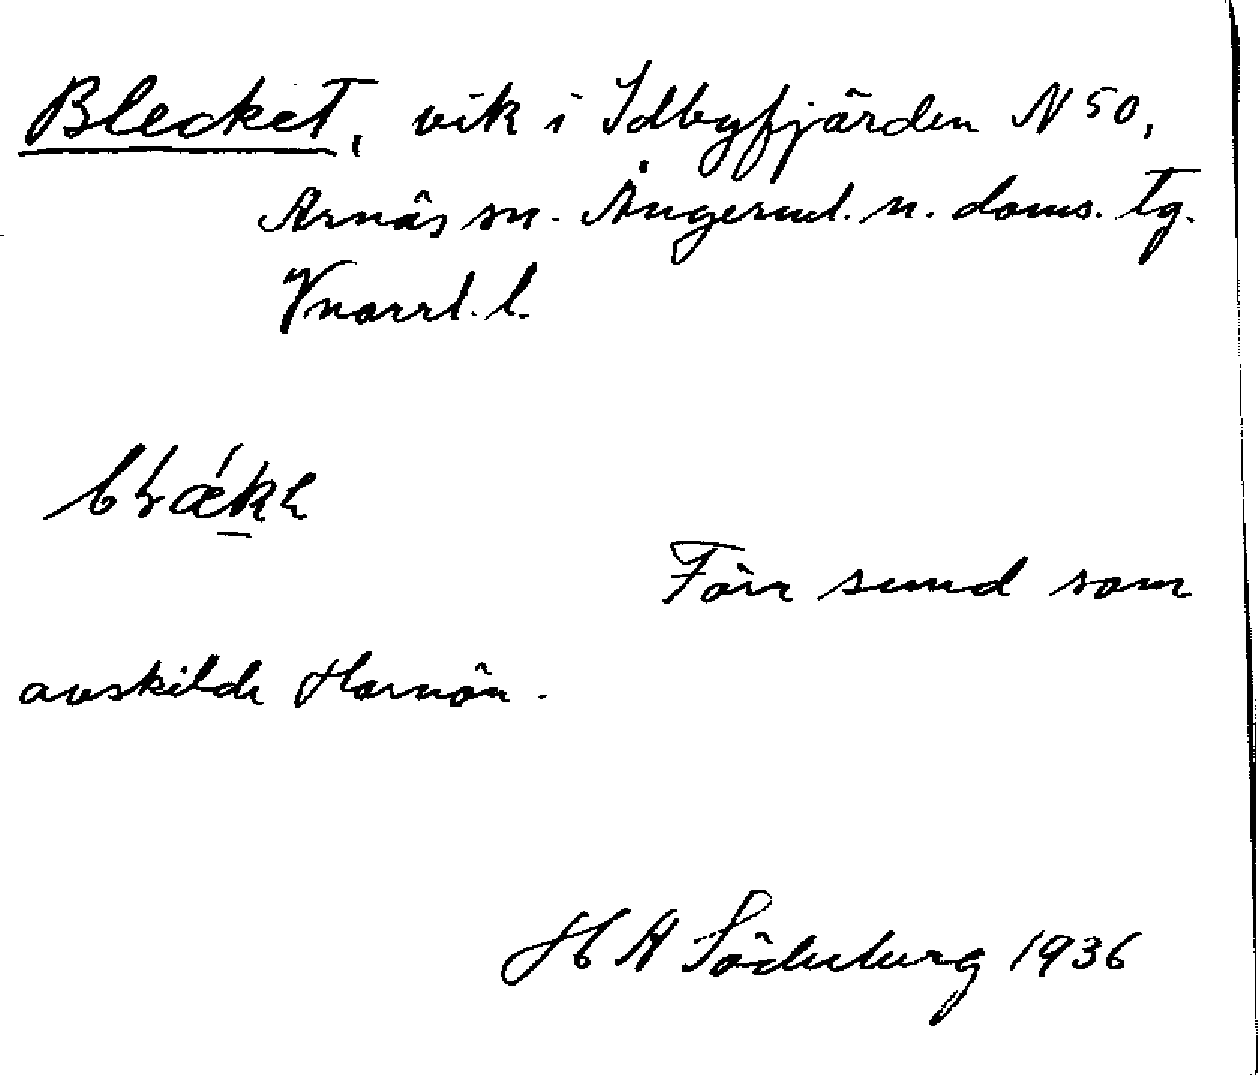 Blecket, vik i Idbyfjärden N 50,
Arnäs sn. Ångerml. n. doms. tg.
Vnorrl. l.
Förr sund som
avskilde Harnön.
H A Söderberg 1936